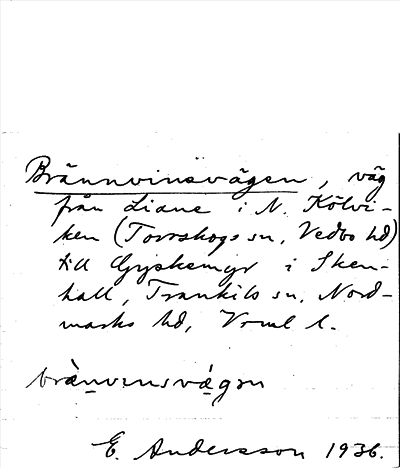 Brännvinsvägen, väg
från Liane i N. Kölvi-
ken (Torrskogs sn, Vedbo hd)
till Gyskemyr i Sken-
hall, Trankils sn, Nord-
marks hd, Vrml l.
brä̀nvinsvä́gən
E. Andersson 1936.